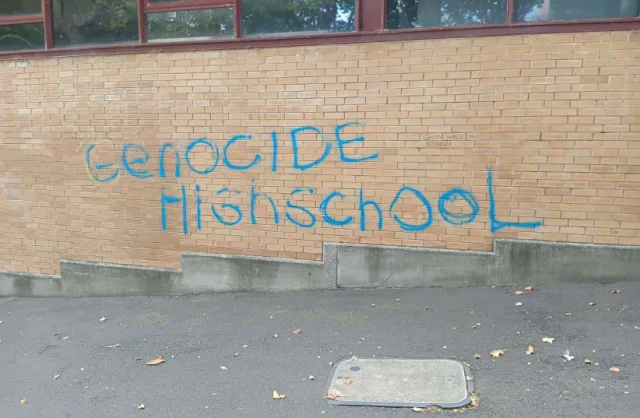 GENOCIDE
HighschooL